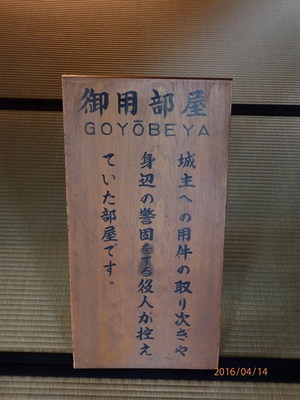 御用部屋
GOYŌBEYA
城主への用件の取り次ぎや
身辺の警固をする役人が控え
ていた部屋です。
2016/04/14